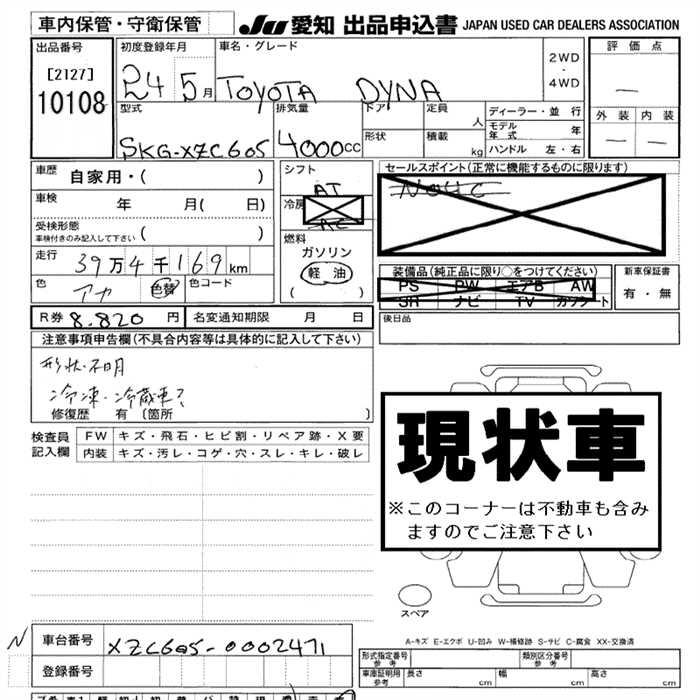 車内保管・守衛保管
JU 愛知 出品申込書 JAPAN USED CAR DEALERS ASSOCIATION
出品番号
[2127]
10108
初度登録年月
24 5月
車名・グレード
TOYOTA DYNA
2WD
・
4WD
評価点
—
外装 内装
— —
型式
SKG-XZC605
排気量
4000cc
ドア
形状
定員 人
積載 kg
ディーラー・並行
モデル年式 年
ハンドル 左・右
車歴 自家用・( )
車検 年 月( 日)
受検形態
車検付きのみ記入して下さい ( )
走行 39万4千169km
色 アカ 色替 色コード
シフト
AT
冷房
AC
燃料
ガソリン
軽油
( )
セールスポイント(正常に機能するものに限ります)
装備品(純正品に限り○をつけてください)
PS PW エアB AW
SR ナビ TV カワシート
新車保証書
有・無
R券 8.820円 名変通知期限 月 日
後日品
注意事項申告欄(不具合内容等は具体的に記入して下さい)
形状・不明
冷凍・冷蔵車?
修復歴 有〔箇所 〕
検査員記入欄
FW キズ・飛石・ヒビ割・リペア跡・X要
内装 キズ・汚レ・コゲ・穴・スレ・キレ・破レ
現状車
※このコーナーは不動車も含み
ますのでご注意下さい
スペア
A-キズ E-エクボ U-凹み W-補修跡 S-サビ C-腐食 XX-交換済
N
車台番号 XZC605-0002471
登録番号
形式指定番号
参考
類別区分番号
参考
車庫証明用
参考
長さ cm 幅 cm 高さ cm